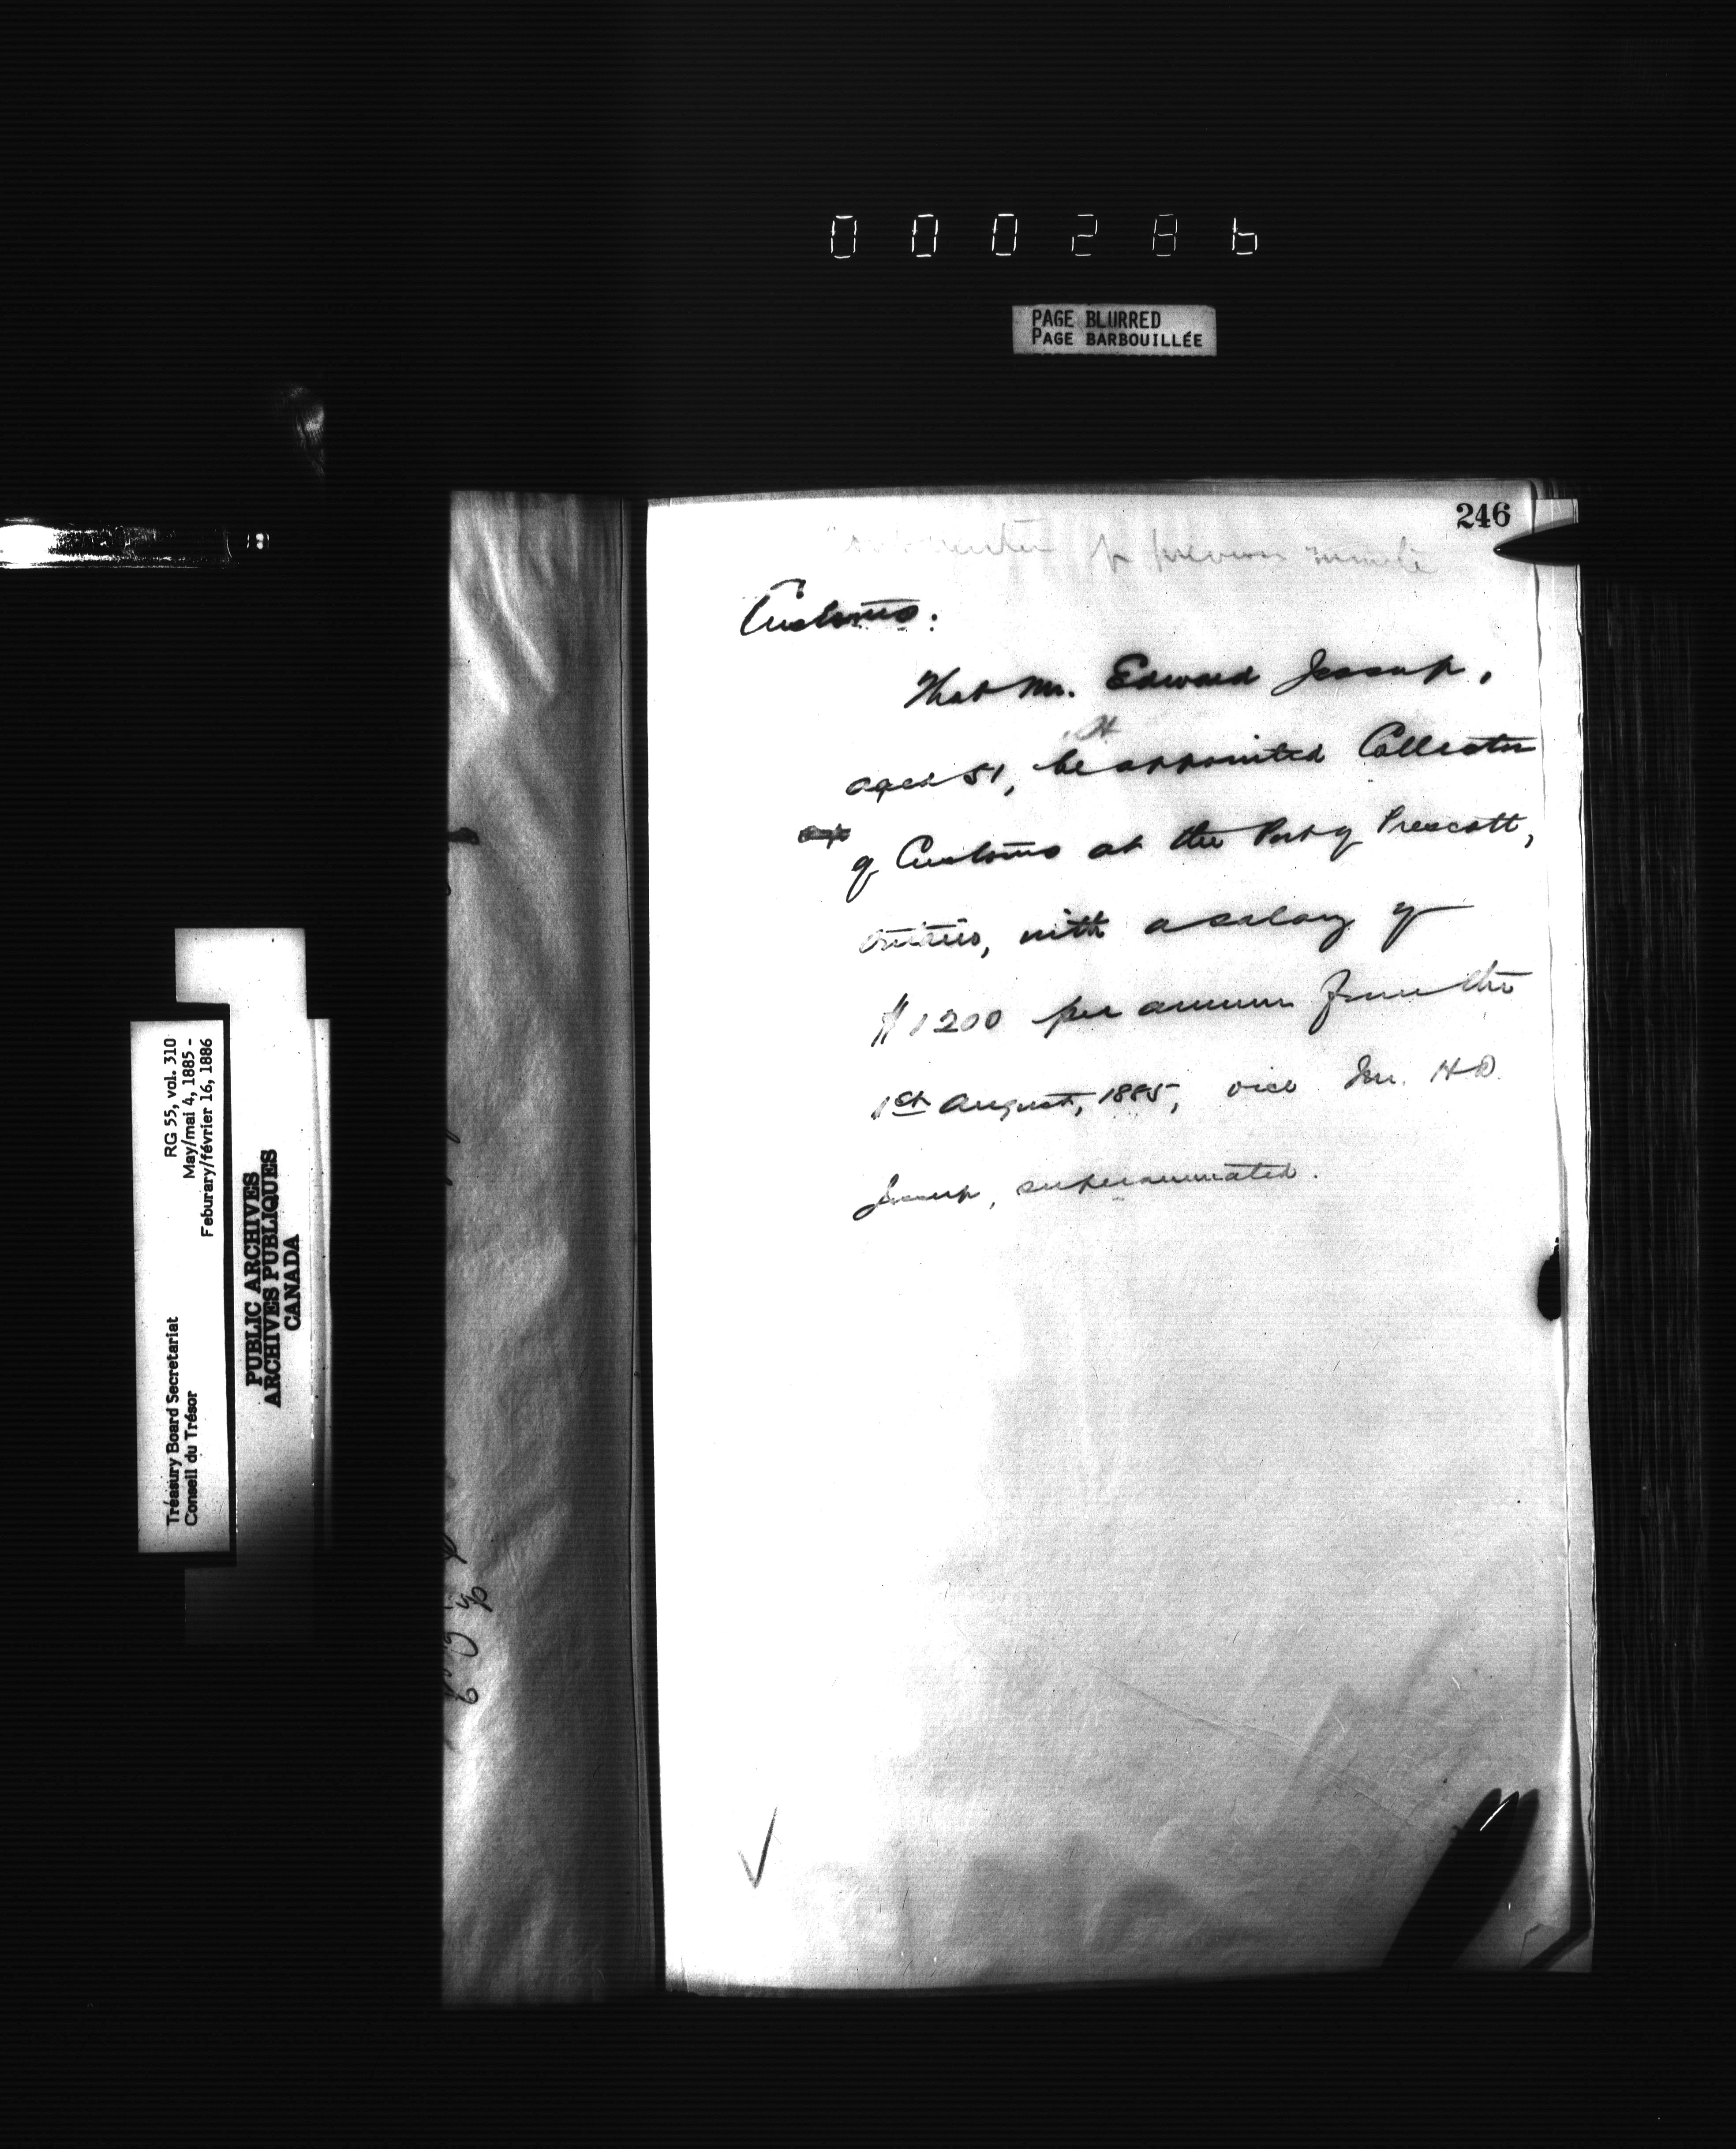 000286
PAGE BLURRED
PAGE BARBOUILLÉE
246
for previous minute
Customs:
That Mr. Edward Jessup,
aged 51, be appointed Collector
of Customs at the Port of Prescott,
Ontario, with a salary of
$1200 per annum from the
1st August, 1885, vice Mr. H.D.
Jessup, superannuated.
Treasury Board Secretariat
Conseil du Trésor
RG 55, vol. 310
May/mai 4, 1885 -
Feburary/février 16, 1886
PUBLIC ARCHIVES
ARCHIVES PUBLIQUES
CANADA
18